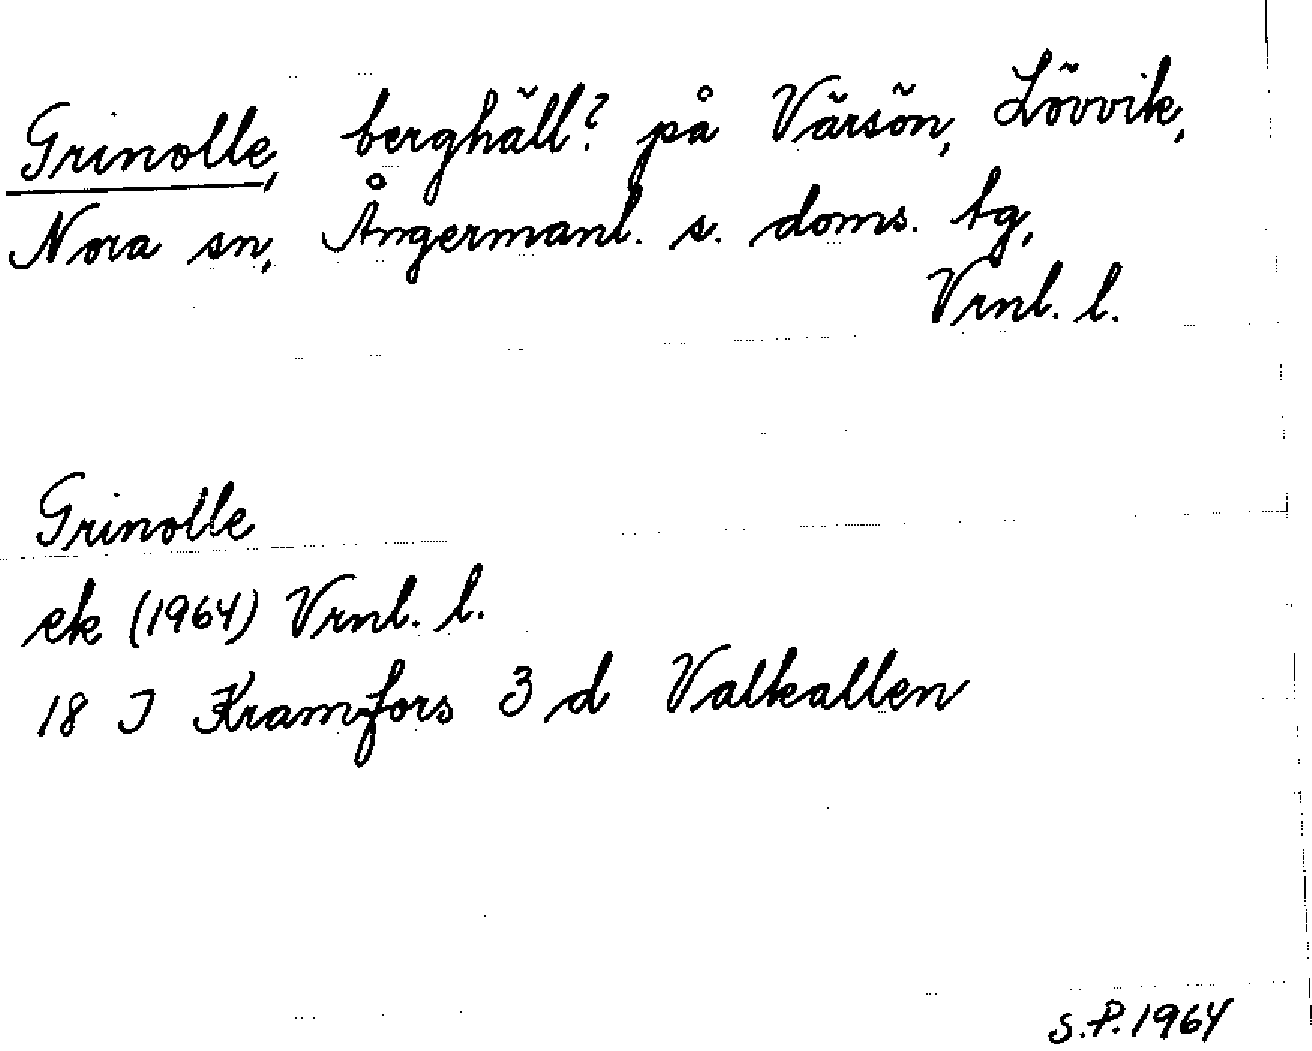 Grinolle, berghäll? på Värsön, Lövvik,
Nora sn, Ångermanl. s. doms. tg,
Vrnl. l.
Grinolle
ek (1964) Vrnl. l.
18 I Kramfors 3 d Valkallen
S.P. 1964